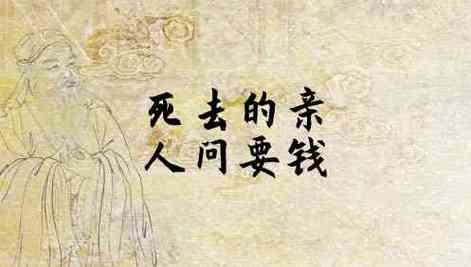 死去的亲
人问要钱